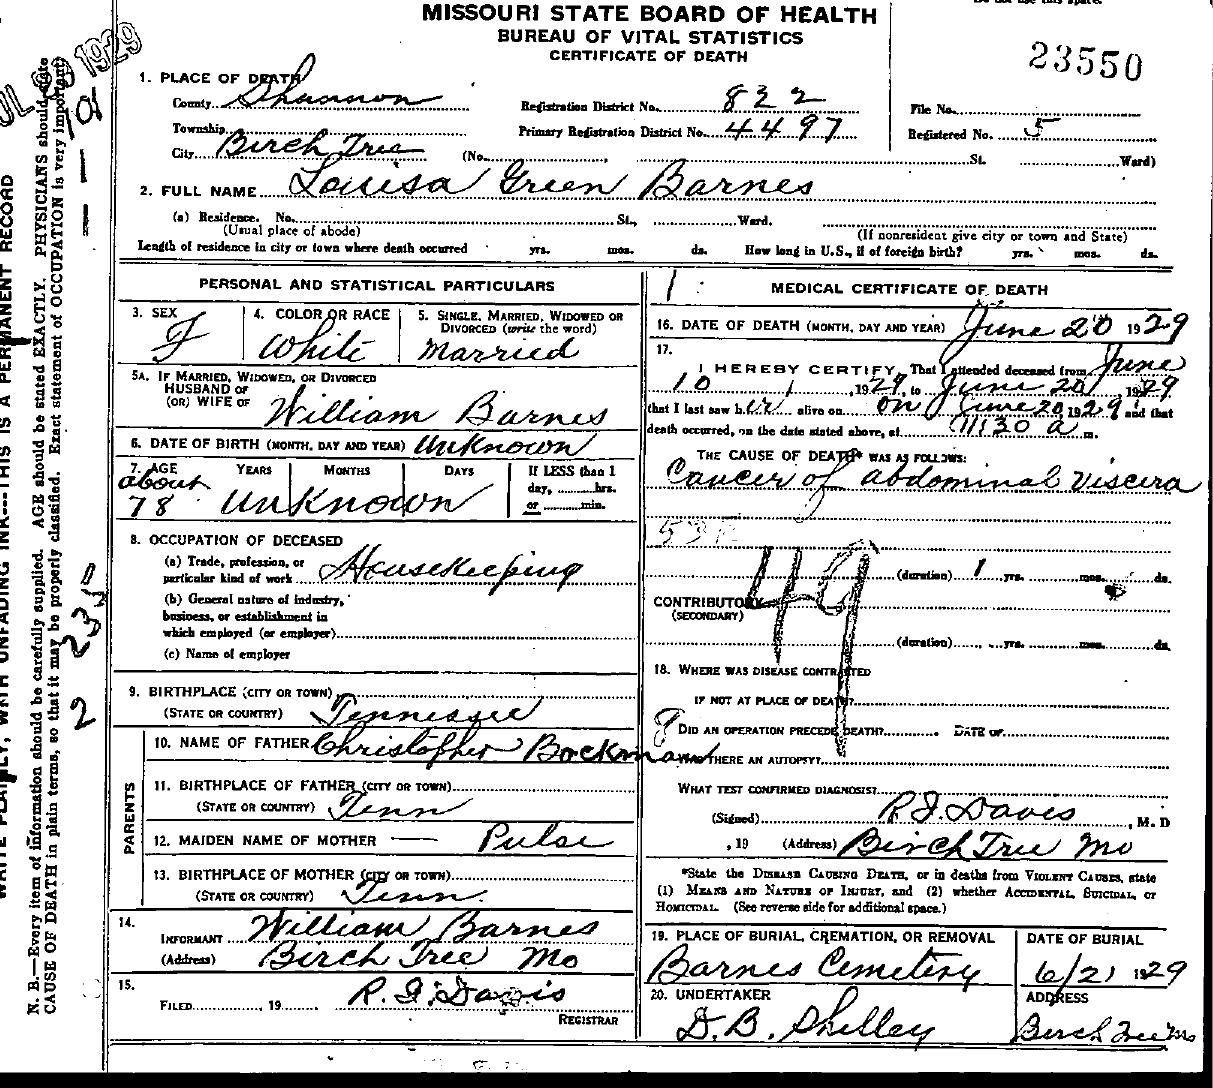 MISSOURI STATE BOARD OF HEALTH
BUREAU OF VITAL STATISTICS
CERTIFICATE OF DEATH
23550
1929
1. PLACE OF DEATH
County Shannon Registration District No. 822 File No.
Township Primary Registration District No. 4497 Registered No. 5
City Birch Tree (No. St. Ward)
2. FULL NAME Louisa Green Barnes
(a) Residence. No. St., Ward.
(Usual place of abode) (If nonresident give city or town and State)
Length of residence in city or town where death occurred yrs. mos. ds. How long in U.S., if of foreign birth? yrs. mos. ds.
PERSONAL AND STATISTICAL PARTICULARS
3. SEX 4. COLOR OR RACE 5. SINGLE, MARRIED, WIDOWED OR
DIVORCED (write the word)
F White Married
5A. IF MARRIED, WIDOWED, OR DIVORCED
HUSBAND OF
(OR) WIFE OF William Barnes
6. DATE OF BIRTH (MONTH, DAY AND YEAR) Unknown
7. AGE YEARS MONTHS DAYS If LESS than 1
about day, hrs.
78 Unknown or min.
8. OCCUPATION OF DECEASED
(a) Trade, profession, or
particular kind of work Housekeeping
(b) General nature of industry,
business, or establishment in
which employed (or employer)
(c) Name of employer
9. BIRTHPLACE (CITY OR TOWN)
(STATE OR COUNTRY) Tennessee
PARENTS
10. NAME OF FATHER Christopher Bockman
11. BIRTHPLACE OF FATHER (CITY OR TOWN)
(STATE OR COUNTRY) Tenn
12. MAIDEN NAME OF MOTHER — Pulse
13. BIRTHPLACE OF MOTHER (CITY OR TOWN)
(STATE OR COUNTRY) Tenn.
14.
INFORMANT William Barnes
(Address) Birch Tree Mo
15.
FILED 19 R. I. Davis
REGISTRAR
1
MEDICAL CERTIFICATE OF DEATH
16. DATE OF DEATH (MONTH, DAY AND YEAR) June 20 1929
17.
I HEREBY CERTIFY, That I attended deceased from June
10, 1929, to June 20, 1929
that I last saw her alive on on June 20, 1929 and that
death occurred, on the date stated above, at 11:30 a m.
THE CAUSE OF DEATH* WAS AS FOLLOWS:
Cancer of abdominal viscera
49
(duration) 1 yrs. mos. ds.
CONTRIBUTORY
(SECONDARY)
(duration) yrs. mos. ds.
18. WHERE WAS DISEASE CONTRACTED
IF NOT AT PLACE OF DEATH?
DID AN OPERATION PRECEDE DEATH? DATE OF
WAS THERE AN AUTOPSY?
WHAT TEST CONFIRMED DIAGNOSIS?
(Signed) R. I. Davis, M. D
, 19 (Address) Birch Tree Mo
*State the DISEASE CAUSING DEATH, or in deaths from VIOLENT CAUSES, state
(1) MEANS AND NATURE OF INJURY, and (2) whether ACCIDENTAL, SUICIDAL, or
HOMICIDAL. (See reverse side for additional space.)
19. PLACE OF BURIAL, CREMATION, OR REMOVAL DATE OF BURIAL
Barnes Cemetery 6/21 1929
20. UNDERTAKER ADDRESS
D. B. Shelley Birch Tree Mo
N. B.—Every item of information should be carefully supplied. AGE should be stated EXACTLY. PHYSICIANS should state
CAUSE OF DEATH in plain terms, so that it may be properly classified. Exact statement of OCCUPATION is very important.
WRITE PLAINLY, WITH UNFADING INK---THIS IS A PERMANENT RECORD